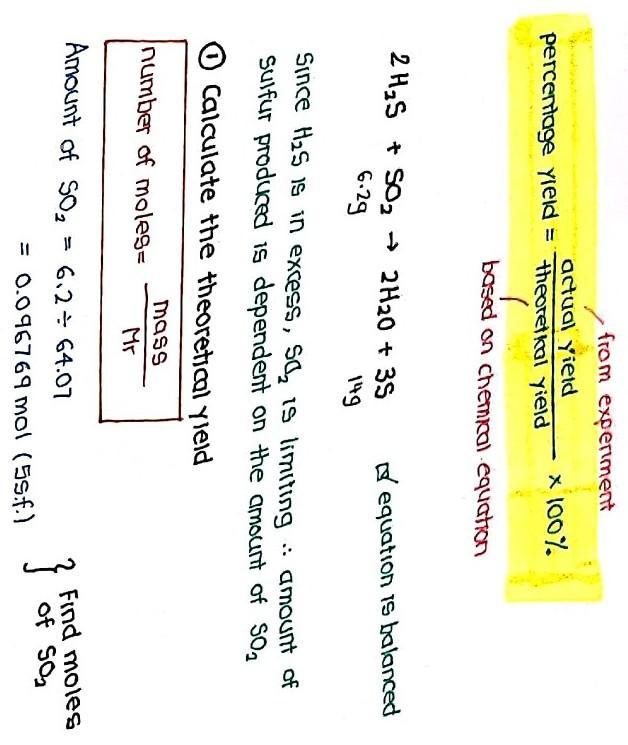 from experiment
percentage yield = actual yield / theoretical yield × 100%
based on chemical equation
2H₂S + SO₂ → 2H₂O + 3S ☑ equation is balanced
6.2g 14g
Since H₂S is in excess, SO₂ is limiting ∴ amount of
sulfur produced is dependent on the amount of SO₂
① Calculate the theoretical yield
number of moles = mass / Mr
Amount of SO₂ = 6.2 ÷ 64.07
= 0.096769 mol (5s.f.)
} Find moles
of SO₂